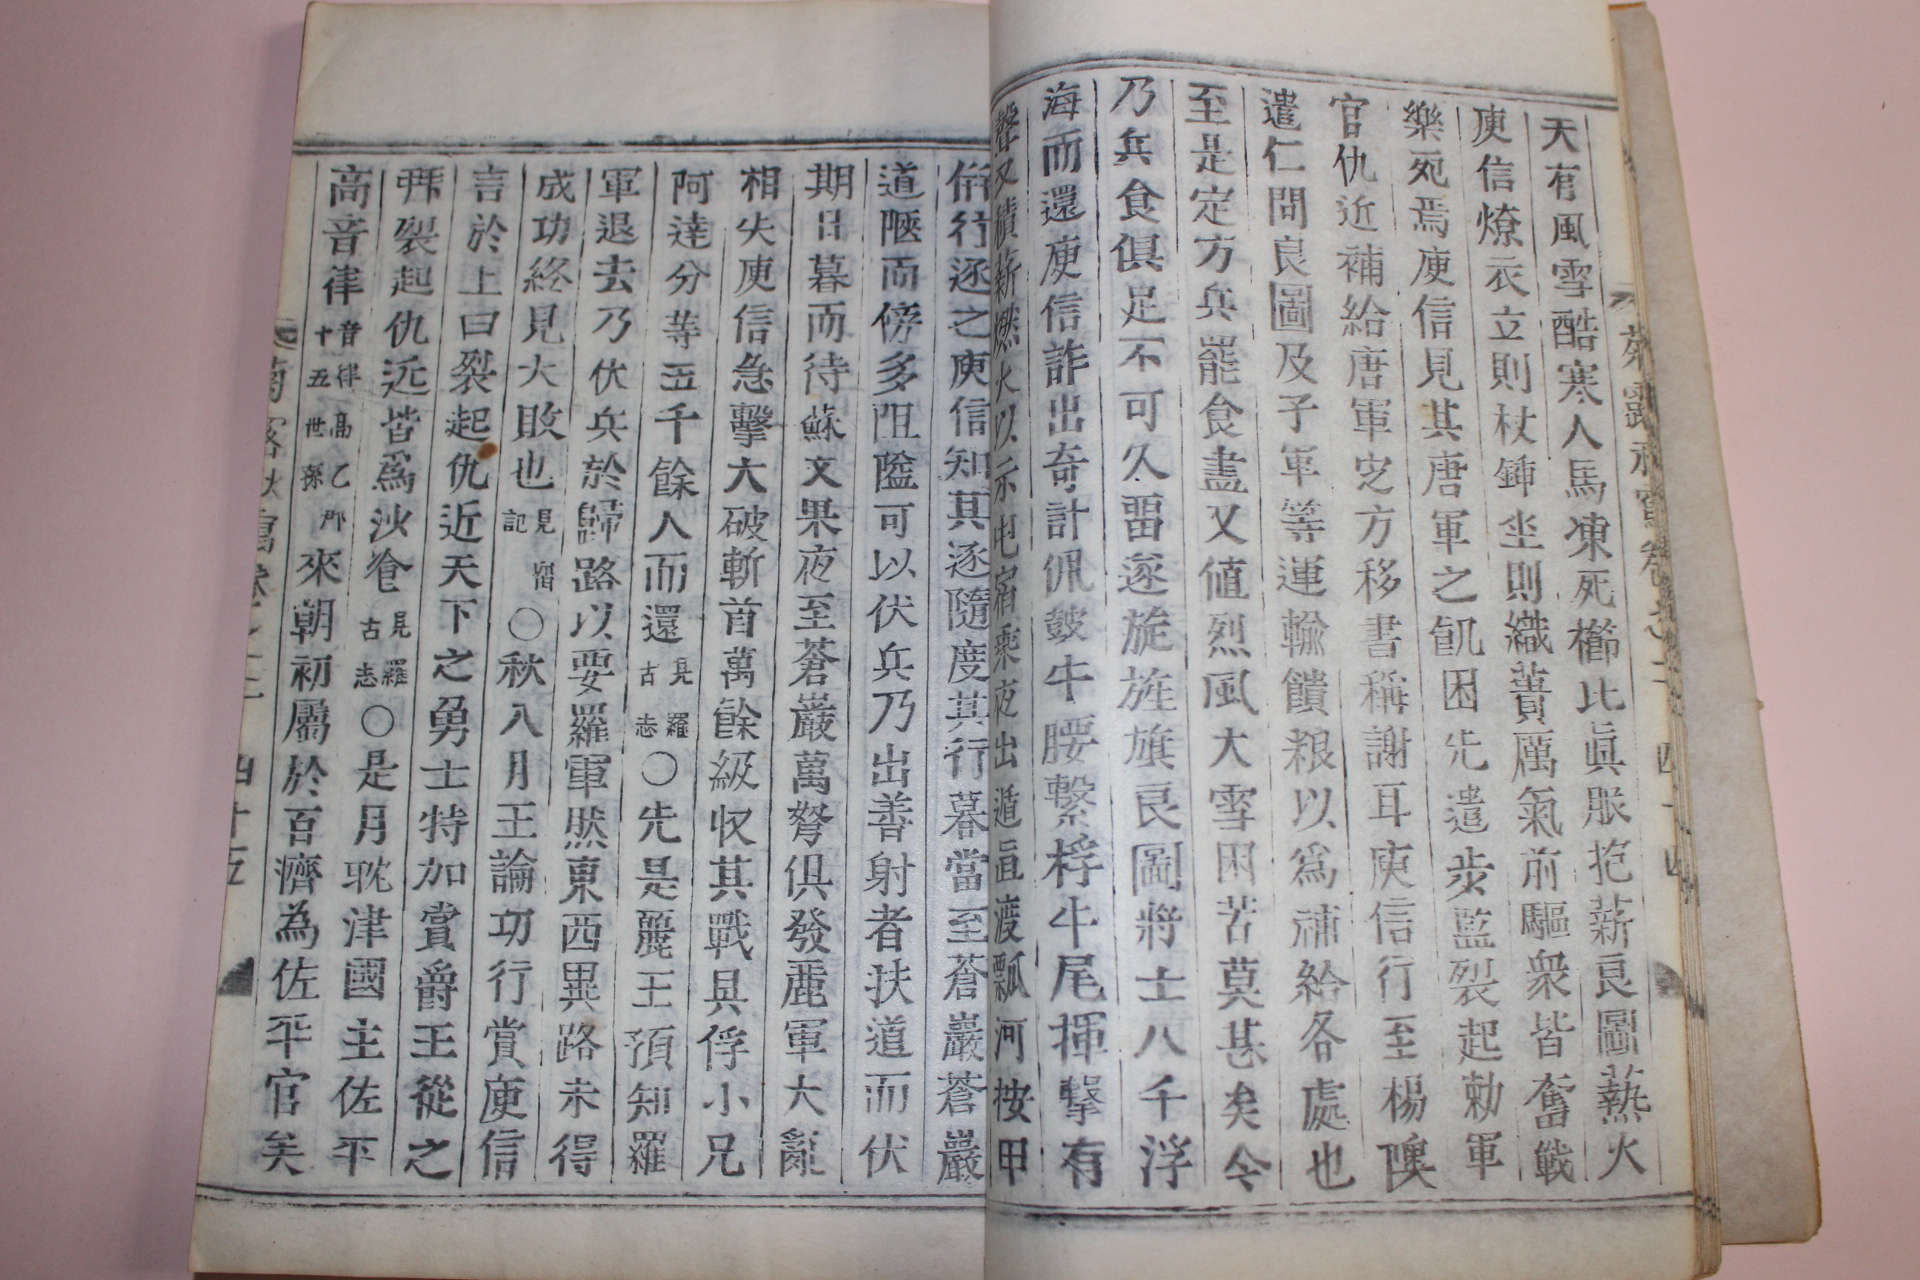 天有風雪酷寒人馬凍死櫛比眞服抱薪良圖爇火
庾信燎衣立則杖錘坐則織蕢厲氣前驅衆皆奮戰
樂死焉庾信見其唐軍之飢困先遣步監裂起勅軍
官仇近補給唐軍定方移書稱謝耳庾信行至楊隩
遣仁問良圖及子軍等運輸饋粮以爲補給各處也
至是定方兵罷食盡又値烈風大雪困苦莫甚矣今
乃兵食俱足不可久畱遂旋旌旗良圖將士八千浮
海而還庾信詐出奇計佩皷牛腰繋桴牛尾揮擊有
聲又積薪燃火以示屯宿乘夜出遁直渡瓢河按甲
偹行逐之庾信知其逐隨度其行暮當至蒼巖蒼巖
道陿而傍多阻隘可以伏兵乃出善射者扶道而伏
期日暮而待蘇文果夜至蒼巖萬弩俱發麗軍大亂
相失庾信急擊大破斬首萬餘級収其戰具俘小兄
阿逹分等五千餘人而還見羅古志〇先是麗王預知羅
軍退去乃伏兵於歸路以要羅軍然東西異路未得
成功終見大敗也見畱記〇秋八月王論功行賞庾信
言於上曰裂起仇近天下之勇士特加賞爵王從之
拜裂起仇近皆爲沙飡見羅古志〇是月耽津國主佐平
高音律音律高乙那十五世孫來朝初屬於百濟為佐平官矣
四十五